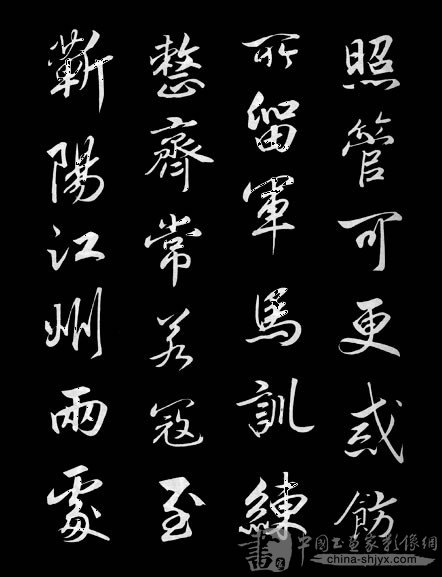 照管可更戒飭
所留軍馬訓練
整齊常若寇至
蘄陽江州兩處
書
中国书画家影像網
www.china-shjyx.com